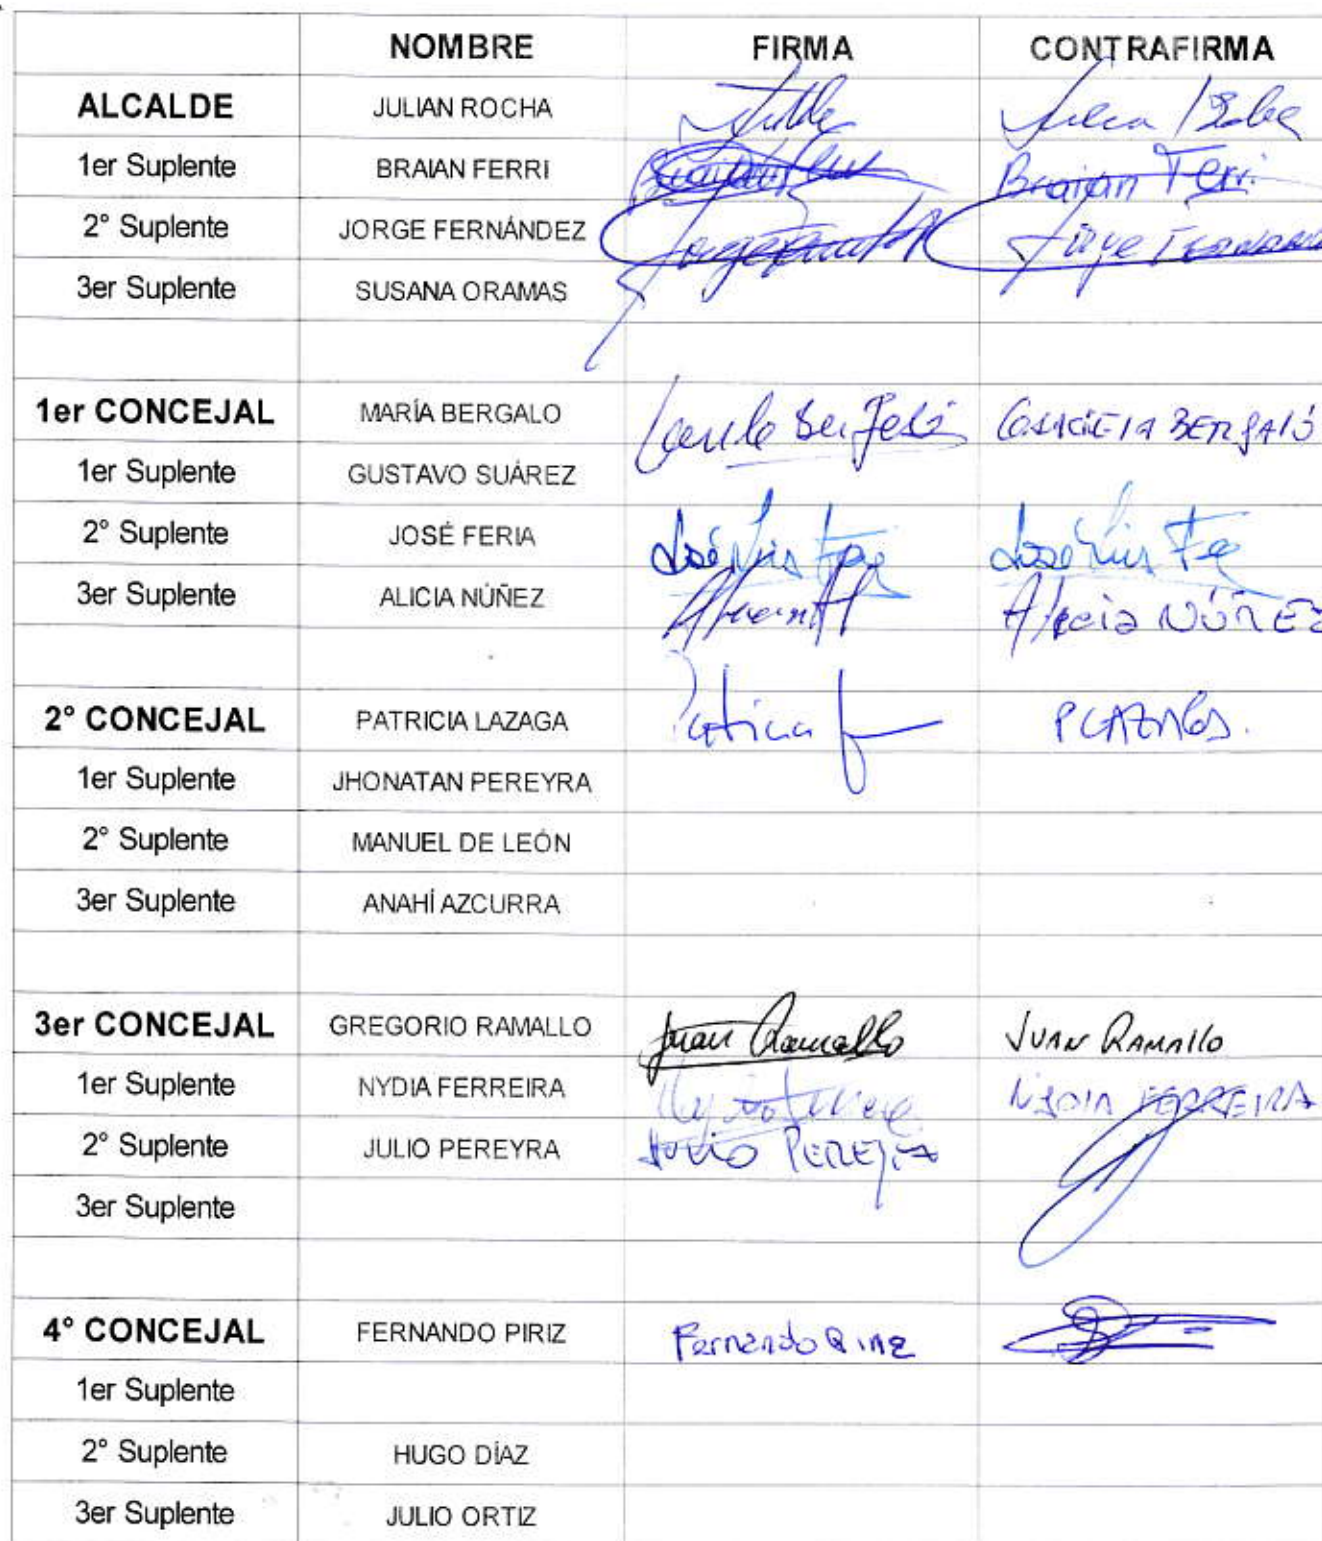 NOMBRE FIRMA CONTRAFIRMA
ALCALDE JULIAN ROCHA
1er Suplente BRAIAN FERRI Braian Ferri
2° Suplente JORGE FERNÁNDEZ Jorge
3er Suplente SUSANA ORAMAS
1er CONCEJAL MARÍA BERGALO
1er Suplente GUSTAVO SUÁREZ
2° Suplente JOSÉ FERIA José Luis José Luis
3er Suplente ALICIA NÚÑEZ Alicia NÚÑEZ
2° CONCEJAL PATRICIA LAZAGA Patricia
1er Suplente JHONATAN PEREYRA
2° Suplente MANUEL DE LEÓN
3er Suplente ANAHÍ AZCURRA
3er CONCEJAL GREGORIO RAMALLO Juan Ramallo JUAN RAMALLO
1er Suplente NYDIA FERREIRA FERREIRA
2° Suplente JULIO PEREYRA JULIO PEREYRA
3er Suplente
4° CONCEJAL FERNANDO PIRIZ Fernando
1er Suplente
2° Suplente HUGO DÍAZ
3er Suplente JULIO ORTIZ